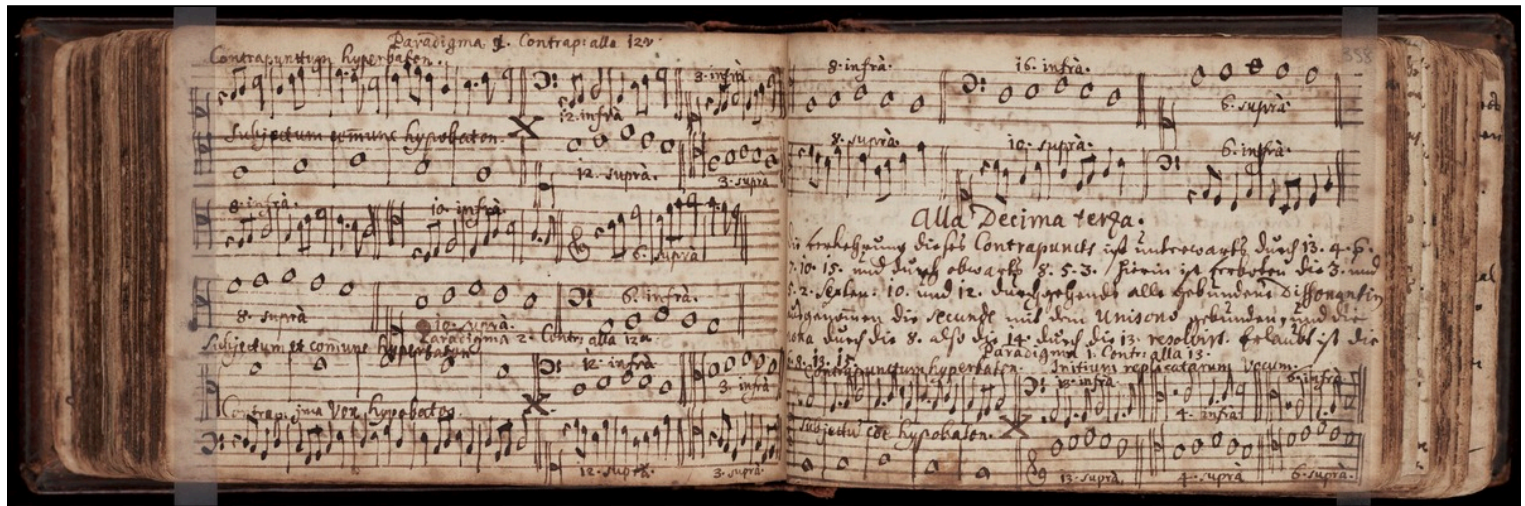 Paradigma 1. Contrap: alla 12a.
Contrapunctum hyperbaton.
3. infrà
12. infrà
Subjectum comune hypobaton.
12. suprà.
3. suprà
8. infrà.
10. infrà
6. suprà
6. infrà.
8. suprà
10. suprà.
Paradigma 2. Contr: alla 12a.
Subjectum et comune hyperbaton
12. infrà
3. infrà
Contrap: ima Vox hypobaton.
12. suprà.
3. suprà.
358
8. infrà.
15. infrà.
6. suprà
8. suprà.
10. suprà.
6. infrà.
Alla Decima terza.
die verkehrung dieses Contrapuncts ist unterwarts durch 13. 4. 6.
10. 15. und durch obwarts 8. 5. 3. hierin ist verboten die 3. und
2. Septen: 10. und 12. durchgehends alle gebundene Dissonantien
die secunde mit dem Unisono gebunden, und die
durch die 8. also die 14. durch die 13. resolvirt. Erlaubt ist die
6. 8. 13. 15.
Paradigma 1. Contr: alla 13.
Contrapunctum hyperbaton. Initium replicatarum Vocum.
13. infrà.
4. infrà
6. infrà
Subjectu coe hypobaton.
13. suprà.
4. suprà
6. suprà.